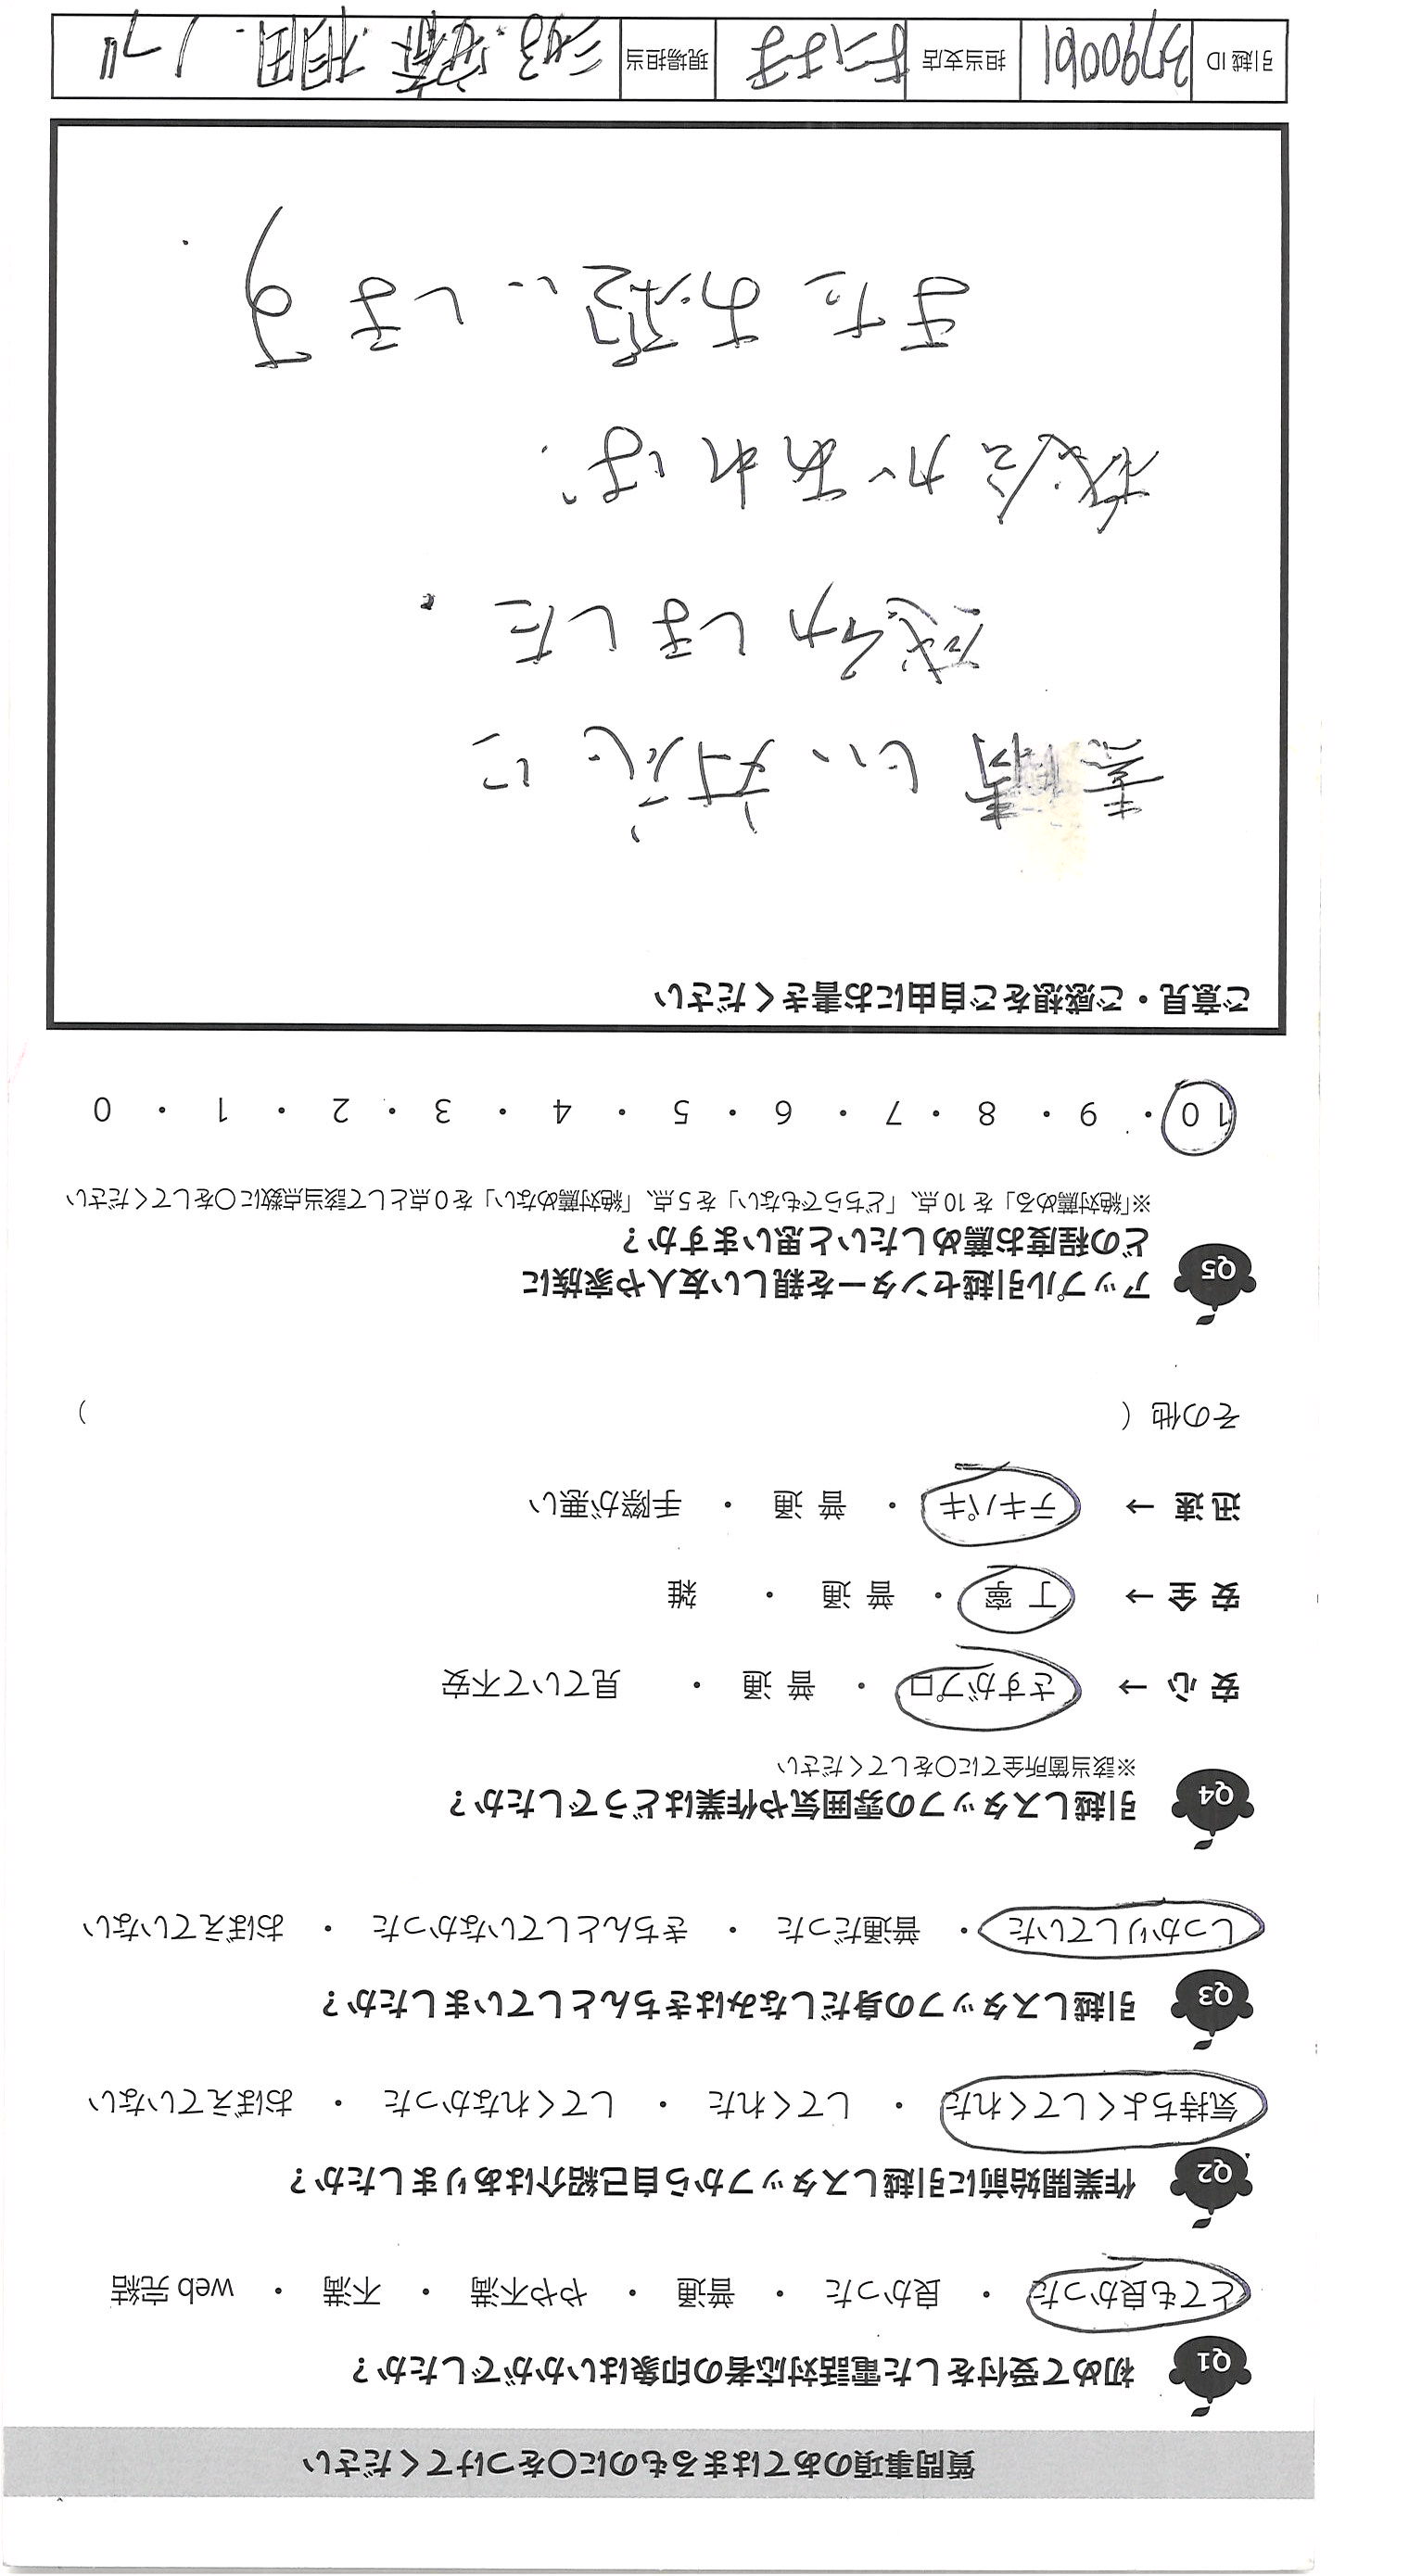 質問事項のあてはまるものに○をつけてください
Q1 初めて受付をした電話対応者の印象はいかがでしたか？
とても良かった ・ 良かった ・ 普通 ・ やや不満 ・ 不満 ・ web 完結
Q2 作業開始前に引越しスタッフから自己紹介はありましたか？
気持ちよくしてくれた ・ してくれた ・ してくれなかった ・ おぼえていない
Q3 引越しスタッフの身だしなみはきちんとしていましたか？
しっかりしていた ・ 普通だった ・ きちんとしていなかった ・ おぼえていない
Q4 引越しスタッフの雰囲気や作業はどうでしたか？
※該当箇所全てに○をしてください
安 心 → さすがプロ ・ 普 通 ・ 見ていて不安
安 全 → 丁 寧 ・ 普 通 ・ 雑
迅 速 → テキパキ ・ 普 通 ・ 手際が悪い
その他（ ）
Q5 アップル引越センターを親しい友人や家族に
どの程度お薦めしたいと思いますか？
※「絶対薦める」を 10 点、「どちらでもない」を 5 点、「絶対薦めない」を 0 点として該当点数に○をしてください
10 ・ 9 ・ 8 ・ 7 ・ 6 ・ 5 ・ 4 ・ 3 ・ 2 ・ 1 ・ 0
ご意見・ご感想をご自由にお書きください
素晴しい対応に
感分しました.
機会があれば.
またお願いします.
引越 ID 担当支店 現場担当 三好. 安齊. 相田.